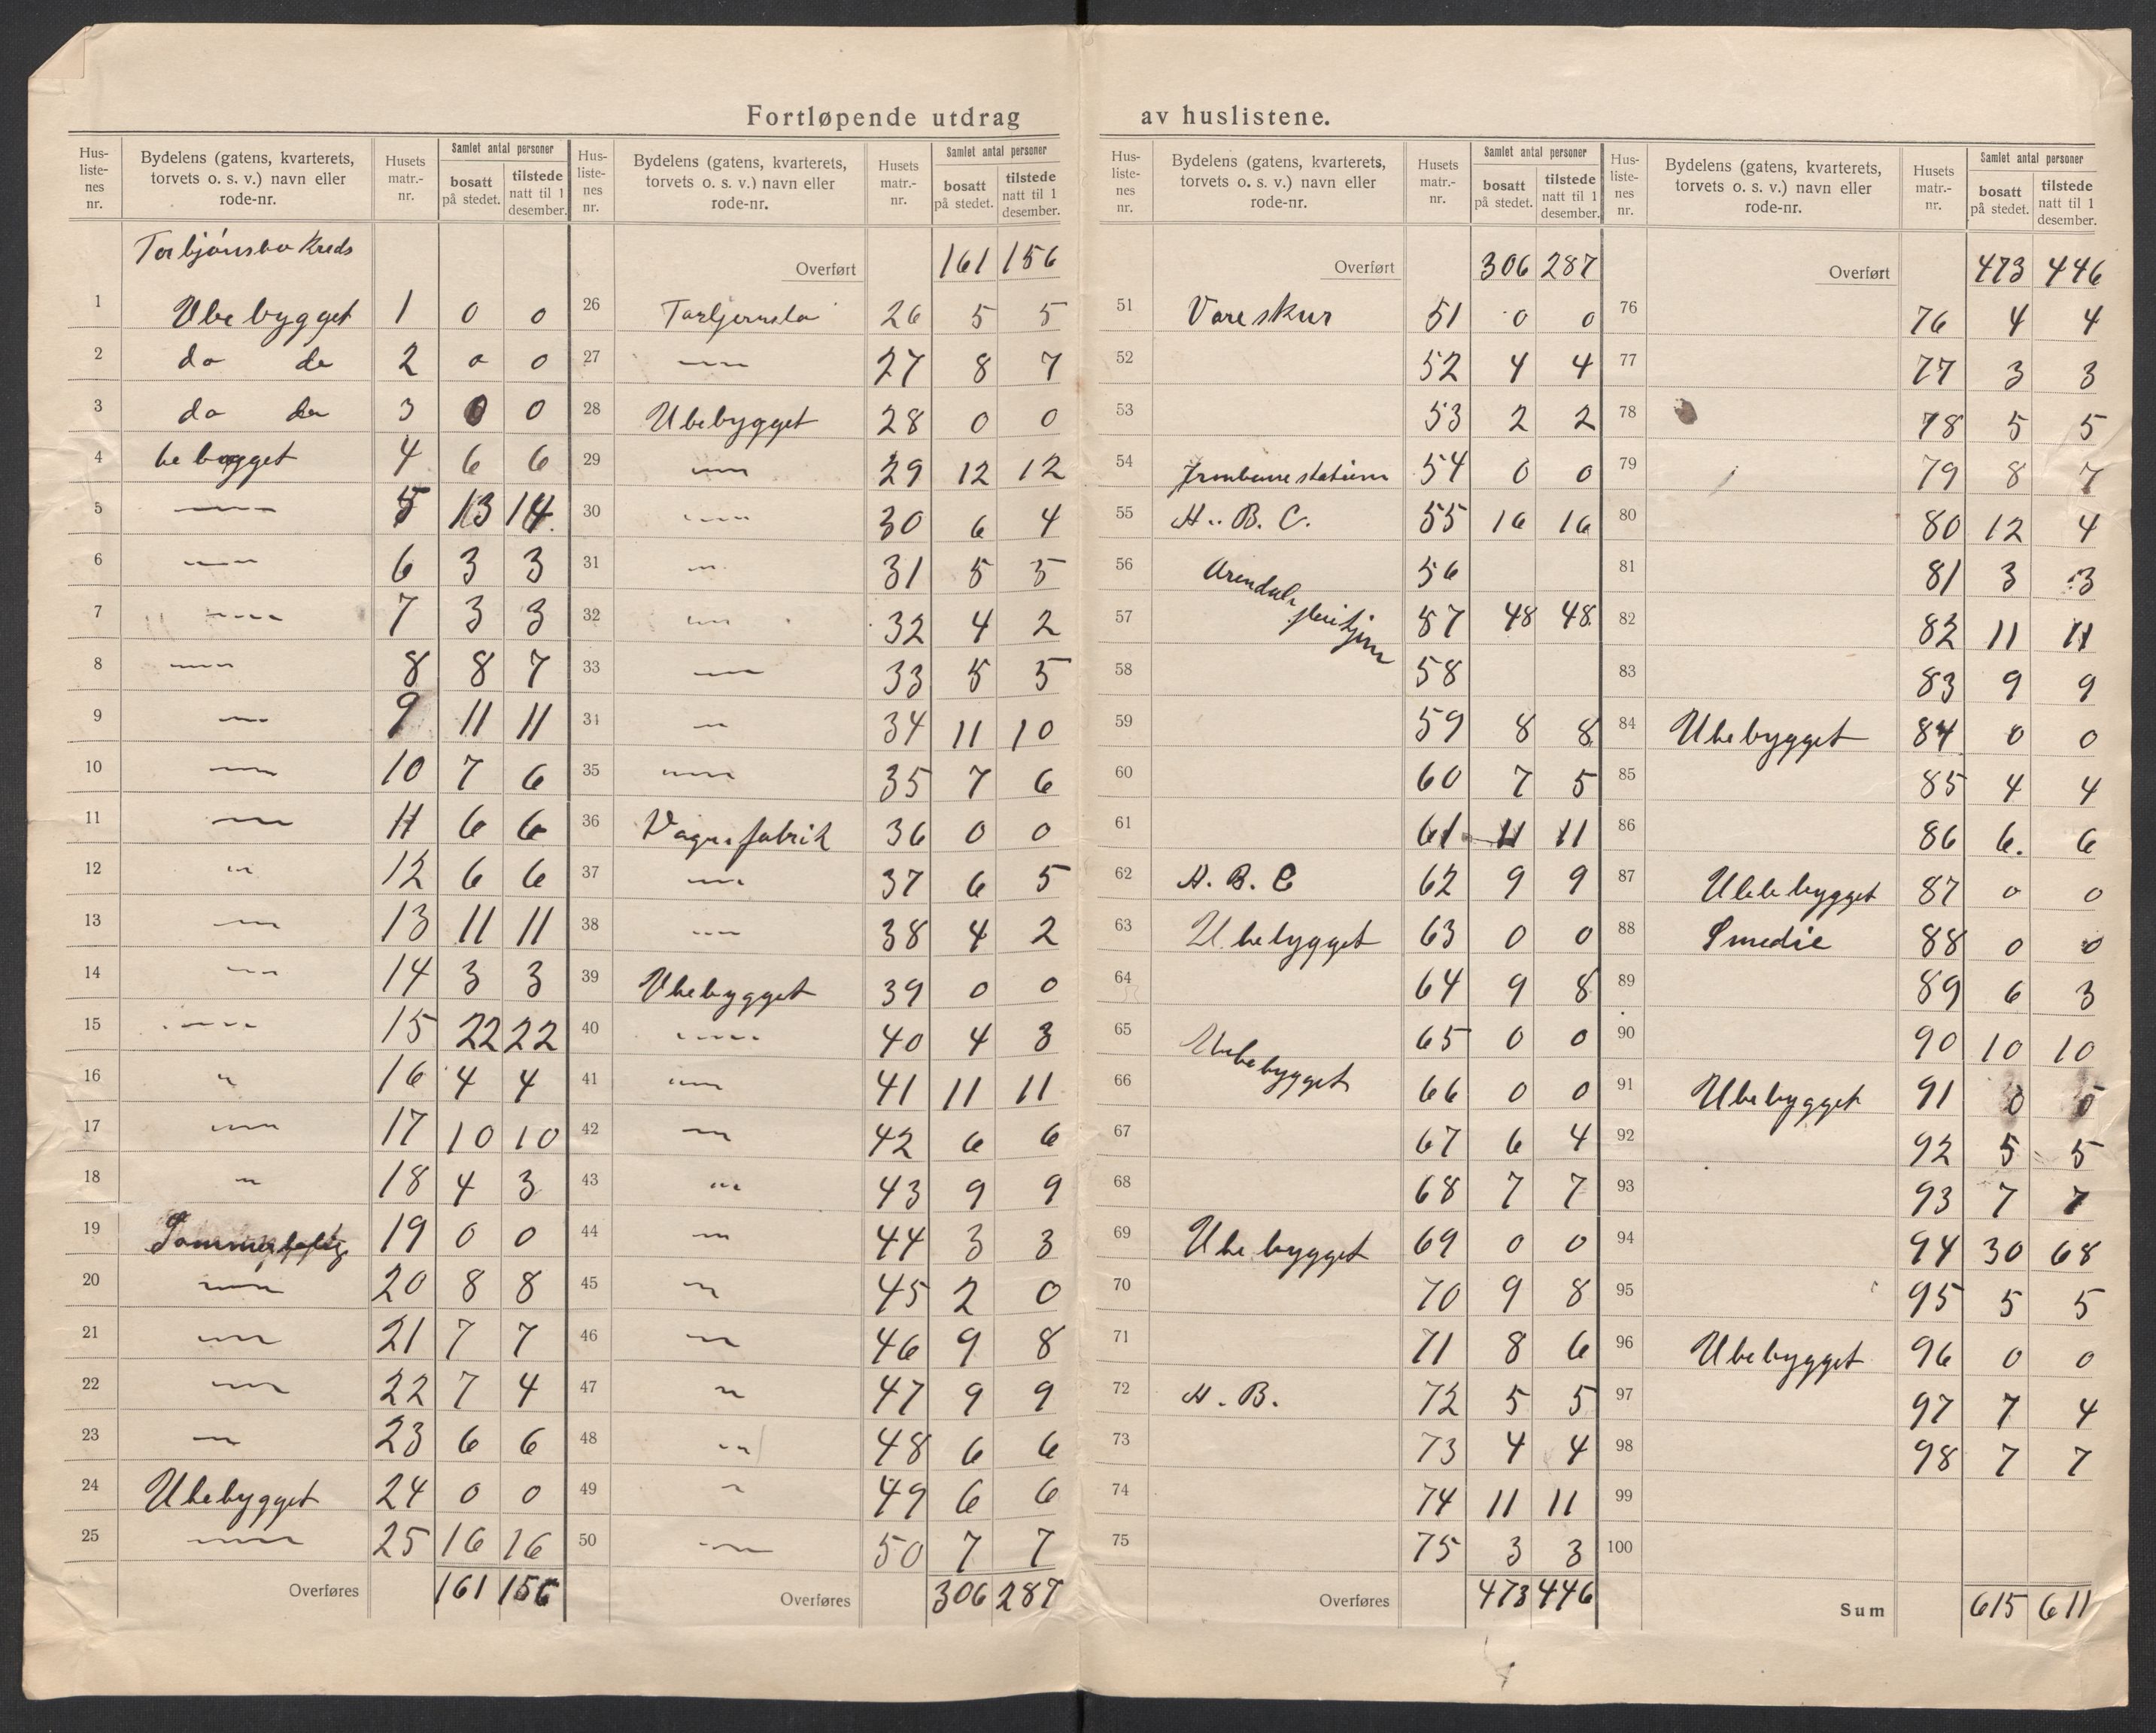 Fortløpende utdrag av huslistene.
Hus-liste-nes nr. | Bydelens (gatens, kvarterets, torvets o. s. v.) navn eller rode-nr. | Husets matr.-nr. | Samlet antal personer bosatt på stedet. | tilstede natt til 1 desember.
Torbjönsbo Kreds
1 Ubebygget 1 0 0
2 do do 2 0 0
3 do do 3 0 0
4 bebygget 4 6 6
5 —"— 5 13 14
6 —"— 6 3 3
7 —"— 7 3 3
8 —"— 8 8 7
9 —"— 9 11 11
10 —"— 10 7 6
11 —"— 11 6 6
12 " 12 6 6
13 —"— 13 11 11
14 —"— 14 3 3
15 —"— 15 22 22
16 " 16 4 4
17 —"— 17 10 10
18 " 18 4 3
19 19 0 0
20 —"— 20 8 8
21 —"— 21 7 7
22 —"— 22 7 4
23 —"— 23 6 6
24 Ubebygget 24 0 0
25 —"— 25 16 16
Overføres 161 156
Hus-liste-nes nr. | Bydelens (gatens, kvarterets, torvets o. s. v.) navn eller rode-nr. | Husets matr.-nr. | Samlet antal personer bosatt på stedet. | tilstede natt til 1 desember.
Overført 161 156
26 Torbjernsbo 26 5 5
27 —"— 27 8 7
28 Ubebygget 28 0 0
29 —"— 29 12 12
30 —"— 30 6 4
31 —"— 31 5 5
32 —"— 32 4 2
33 —"— 33 5 5
34 —"— 34 11 10
35 —"— 35 7 6
36 Vognfabrik 36 0 0
37 —"— 37 6 5
38 —"— 38 4 2
39 Ubebygget 39 0 0
40 —"— 40 4 3
41 —"— 41 11 11
42 —"— 42 6 6
43 —"— 43 9 9
44 —"— 44 3 3
45 —"— 45 2 0
46 —"— 46 9 8
47 " 47 9 9
48 —"— 48 6 6
49 " 49 6 6
50 —"— 50 7 7
Overføres 306 287
Hus-liste-nes nr. | Bydelens (gatens, kvarterets, torvets o. s. v.) navn eller rode-nr. | Husets matr.-nr. | Samlet antal personer bosatt på stedet. | tilstede natt til 1 desember.
Overført 306 287
51 Vareskur 51 0 0
52 52 4 4
53 53 2 2
54 Jernbanestation 54 0 0
55 H.. B. C. 55 16 16
56 Arendals pleiehjem 56
57 57 48 48
58 58
59 59 8 8
60 60 7 5
61 61 11 11
62 H. B. C 62 9 9
63 Ubebygget 63 0 0
64 64 9 8
65 Ubebygget 65 0 0
66 66 0 0
67 67 6 4
68 68 7 7
69 Ubebygget 69 0 0
70 70 9 8
71 71 8 6
72 H. B. 72 5 5
73 73 4 4
74 74 11 11
75 75 3 3
Overføres 473 446
Hus-liste-nes nr. | Bydelens (gatens, kvarterets, torvets o. s. v.) navn eller rode-nr. | Husets matr.-nr. | Samlet antal personer bosatt på stedet. | tilstede natt til 1 desember.
Overført 473 446
76 76 4 4
77 77 3 3
78 78 5 5
79 79 8 7
80 80 12 4
81 81 3 3
82 82 11 11
83 83 9 9
84 Ubebygget 84 0 0
85 85 4 4
86 86 6. 6
87 Ubebygget 87 0 0
88 Smedie 88 0 0
89 89 6 3
90 90 10 10
91 Ubebygget 91 0 0
92 92 5 5
93 93 7 7
94 94 30 68
95 95 5 5
96 Ubebygget 96 0 0
97 97 7 4
98 98 7 7
99
100
Sum 615 611